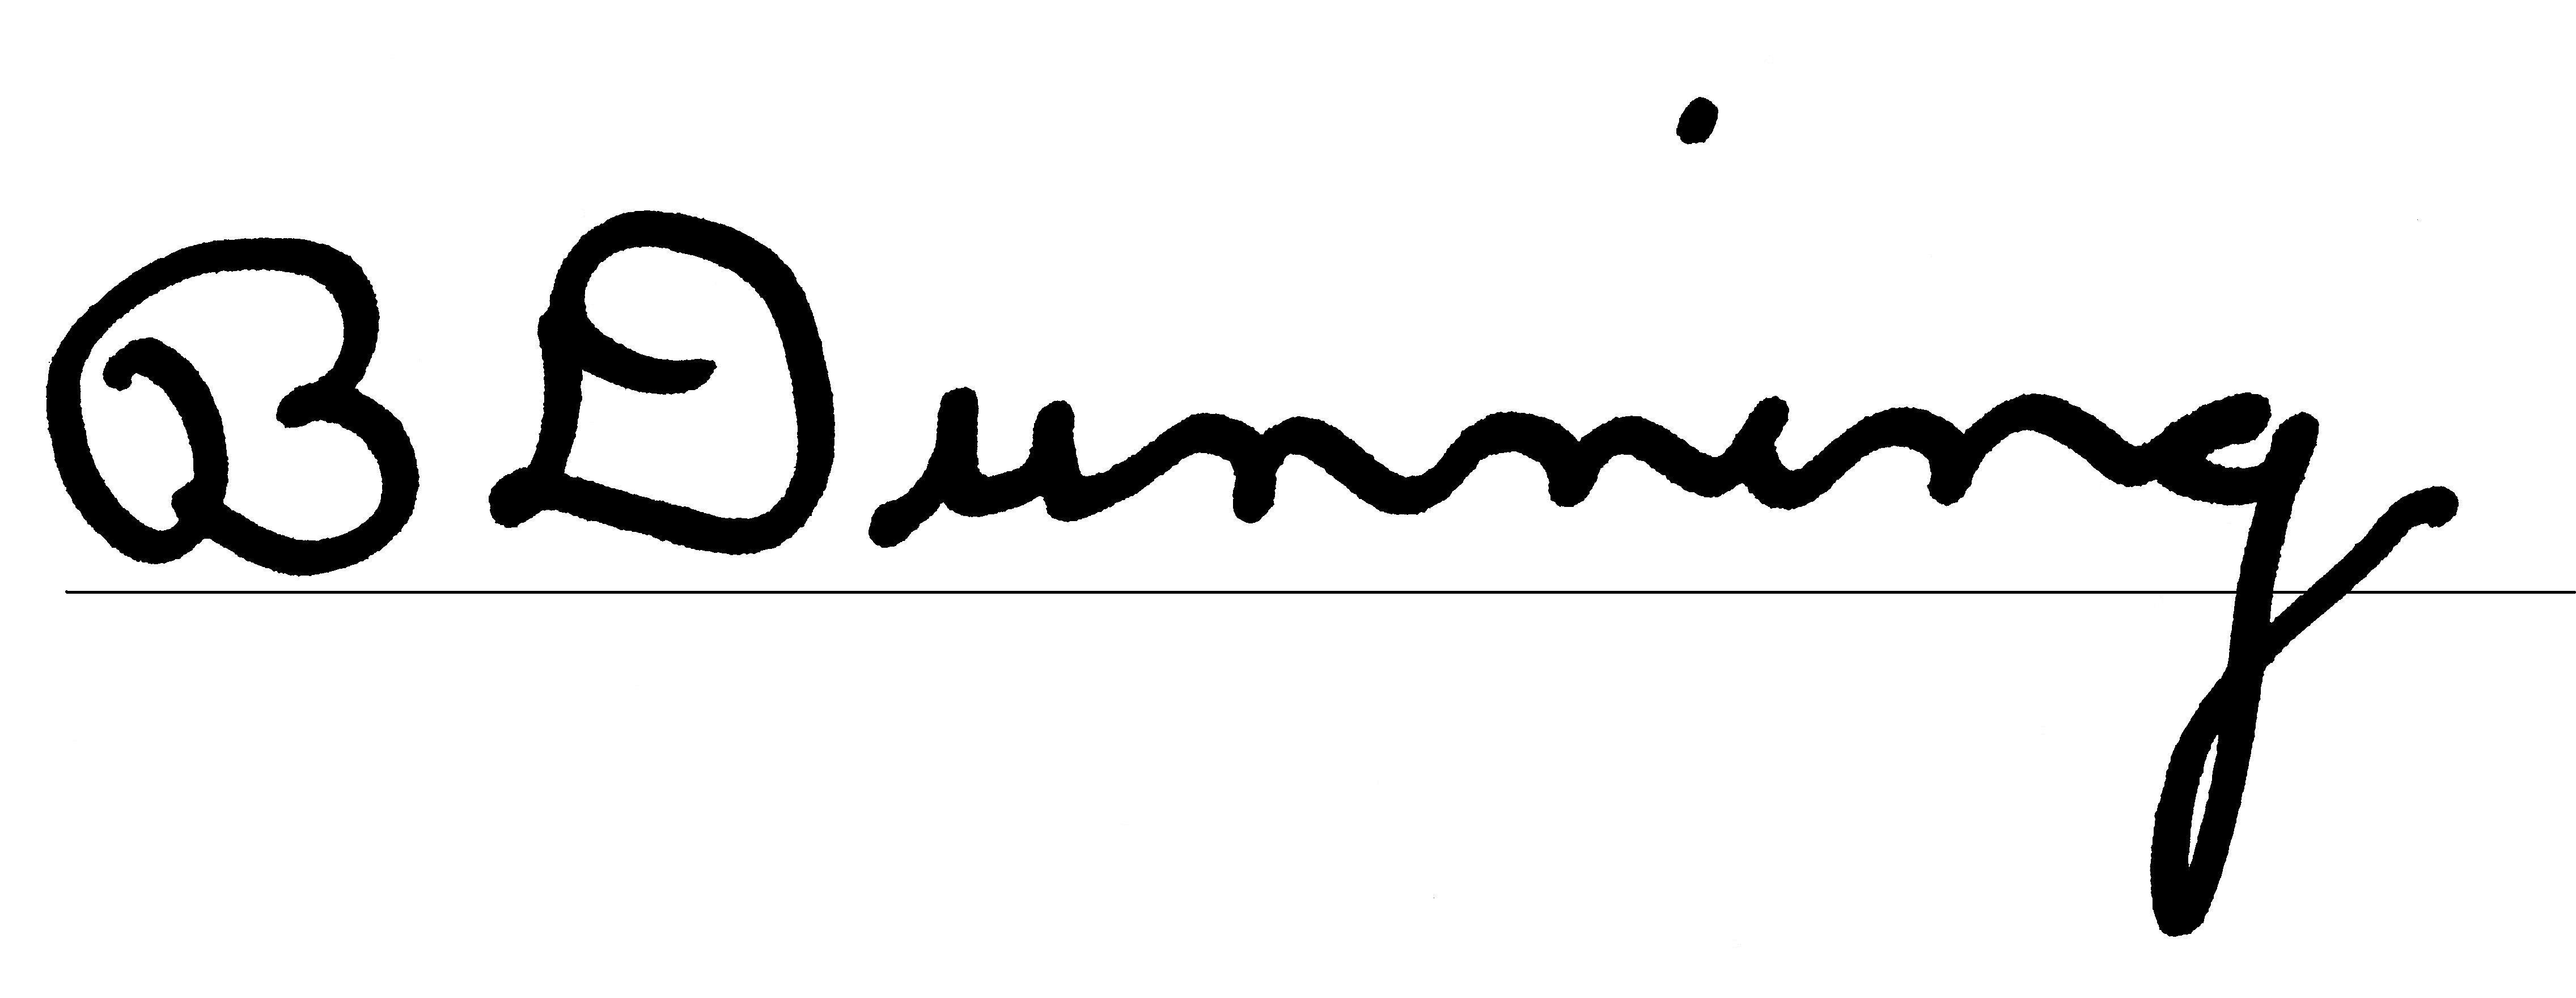 B Dunning